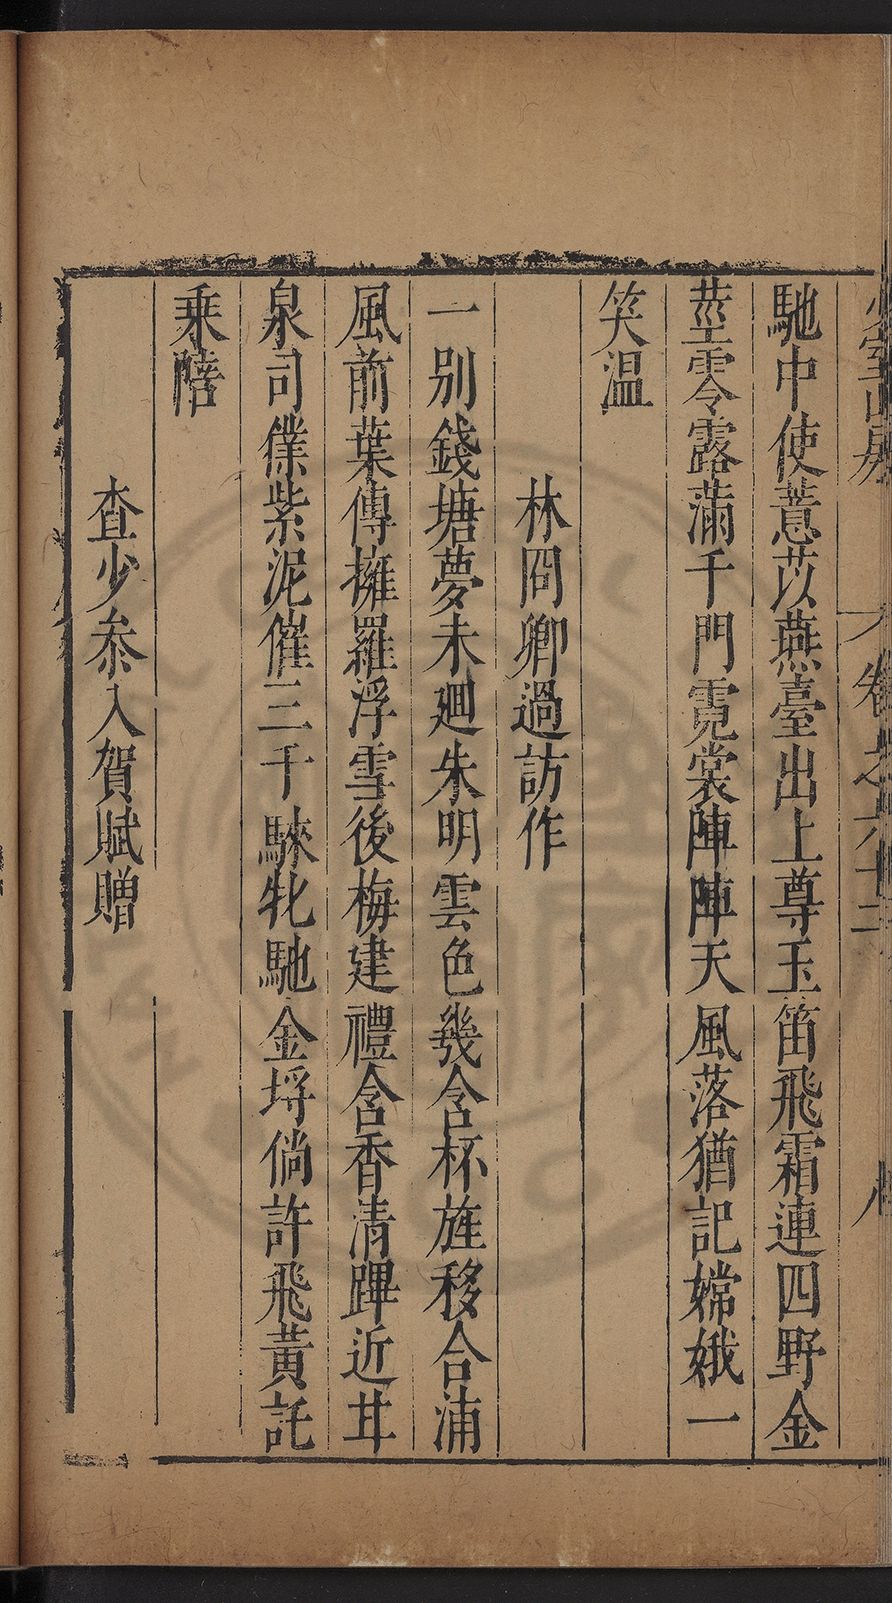 少室山房 卷之六十二 八
馳中使薏苡燕臺出上尊玉笛飛霜連四野金
莖零露滿千門霓裳陣陣天風落猶記嫦娥一
笑温
林冏卿過訪作
一别錢塘夢未廻朱明雲色幾含杯旌移合浦
風前葉傳擁羅浮雪後梅建禮含香清蹕近甘
泉司僕紫泥催三千騋牝馳金埒倘許飛黃託
乘陪
查少叅入賀賦贈